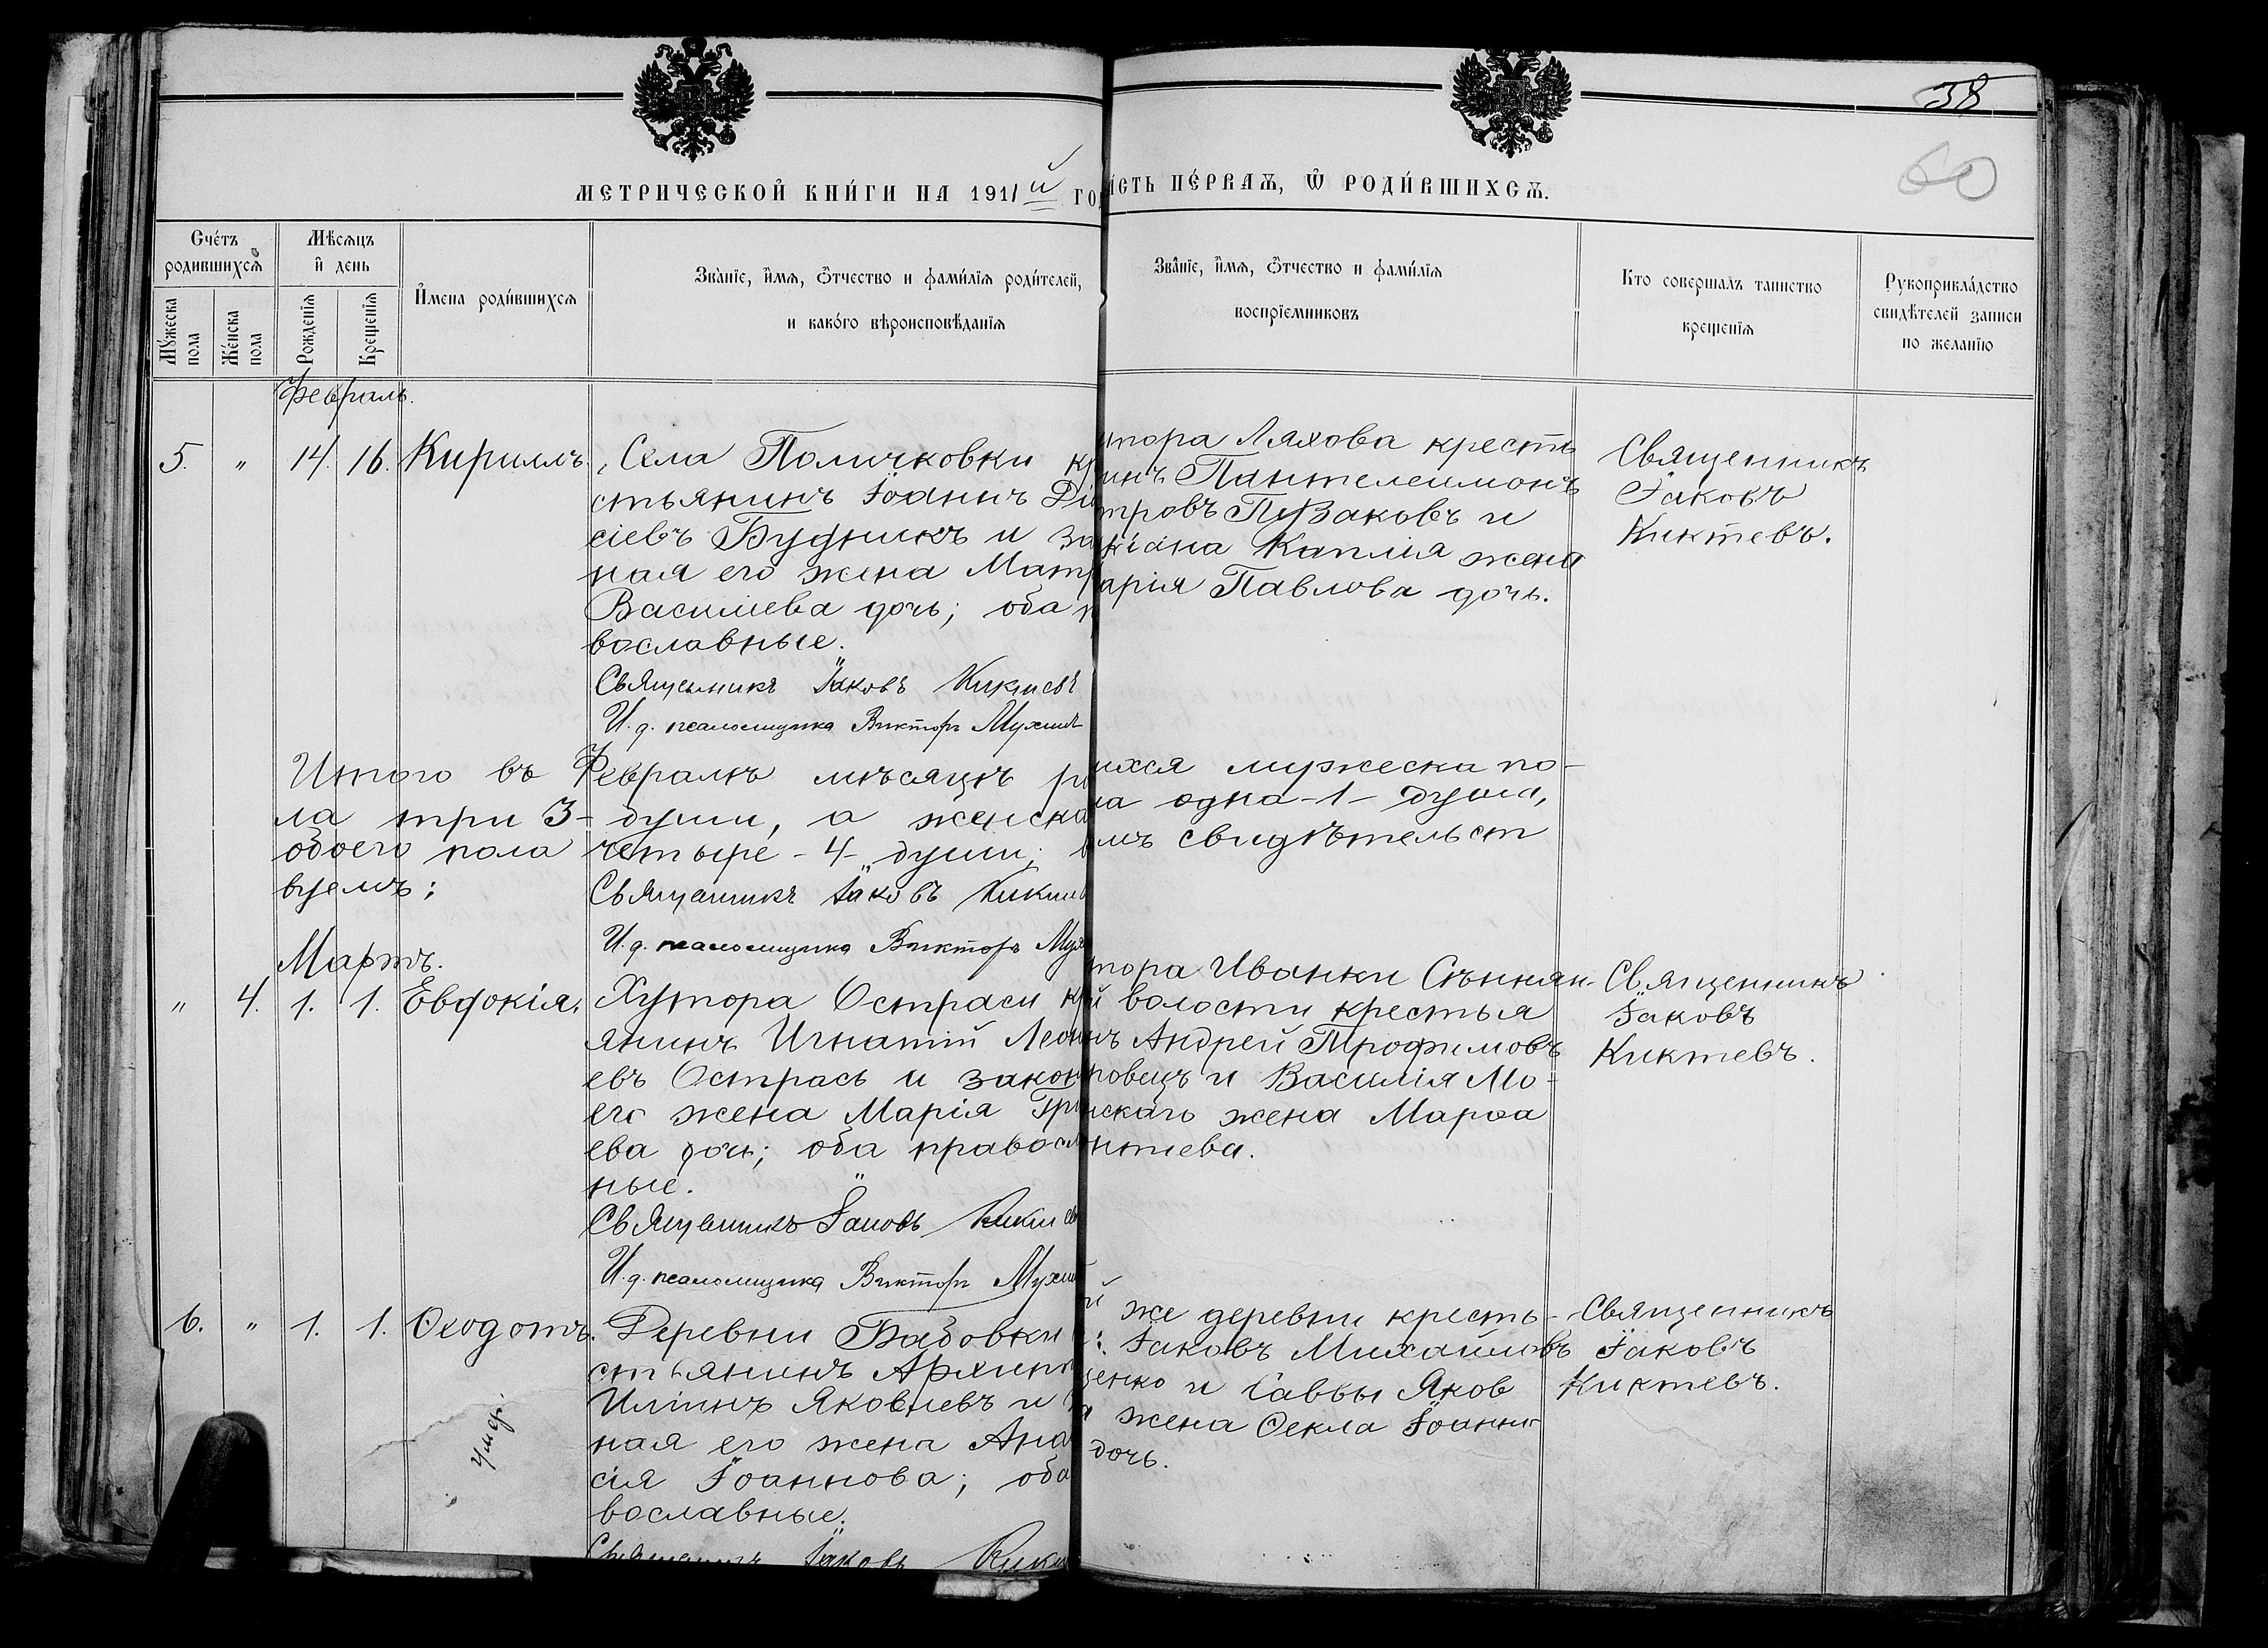 58
60
МЕТРИЧЕСКОЙ КНИ́ГИ НА 1911й ГО
ІСТЬ ПЕ́РВАѦ, Ѿ РОДИ́ВШИХСѦ.
Сче́тъ родившихсѧ
Мѣсѧцъ и день
Му́жеска пола
Же́нска пола
Рожденїѧ
Крещенїѧ
И҆мена роди́вшихсѧ
Зва́нїе, и҆мѧ, ѻ҆тчество и фами́лїѧ роди́телей,
и како́го вѣроисповѣ́данїѧ
Зва́нїе, и҆мѧ, ѻ҆тчество и фами́лїѧ
воспрїемниковъ
Кто совершалъ таинство
крещенїѧ
Рукоприкла́дство
свидѣ́телей записи
по желанїю
Февраль.
5. " 14. 16. Кириллъ.
Села Поличковки кр
стьянинъ Іоаннъ Ди
сіевъ Будникъ и за
ная его жена Матр
Василіева дочь; оба п
вославные.
Священникъ Іаковъ Киктевъ
И. д. псаломщика Викторъ Мухинъ
тора Ляхова кресть
инъ Пантелеимонъ
тровъ Пузаковъ и
жена
арія Павлова дочь.
Священникъ
Іаковъ
Киктевъ.
Итого въ Февралѣ мѣсяцѣ ро
ла три 3- души, а женска
обоего пола четыре -4- души;
вуемъ:
ихся мужеска по-
ла одна -1- душа,
мъ свидѣтельст
Священникъ Іаковъ Киктев
И. д. псаломщика Викторъ Мух
Мартъ.
" 4. 1. 1. Евдокія.
Хутора Остраси кр
янинъ Игнатій Леон
евъ Острась и закон
его жена Марія Гри
ева дочь; оба правосла
ные.
Священникъ Іаковъ Киктев
И. д. псаломщика Викторъ Мухин
тора Иванки Сѣннян-
й волости крестья
нъ Андрей Трофимовъ
ровецъ и Василія Мо-
нскаго жена Марѳа
нтіева.
Священникъ
Іаковъ
Киктевъ.
6. " 1. 1. Ѳеодотъ.
умер.
Деревни Бабовки
стьянинъ Архипъ
Иліинъ Яковлевъ и
ная его жена Ана
сія Іоаннова; оба
вославные.
Священникъ Іаковъ Кик
й же деревни кресть-
: Іаковъ Михайловъ
ценко и Саввы Яков
жена Ѳекла Іоанно
дочь.
Священникъ
Іаковъ
Киктевъ.